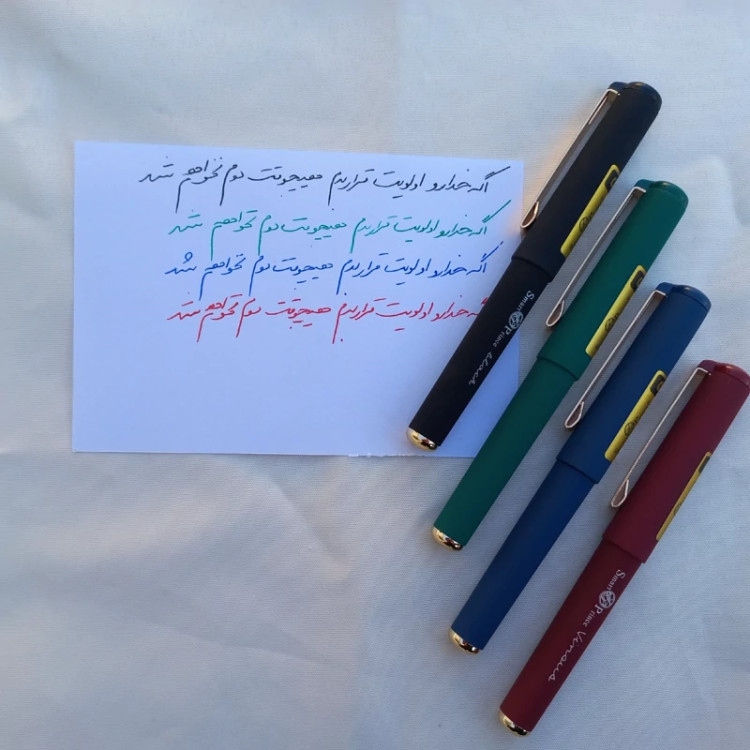 اگه خدارو اولویت قرار بدم هیچوقت دوم نخواهم شد
اگه خدارو اولویت قرار بدم هیچوقت دوم نخواهم شد
اگه خدارو اولویت قرار بدم هیچوقت دوم نخواهم شد
اگه خدارو اولویت قرار بدم هیچوقت دوم نخواهم شد
Smart Prince black
Smart Prince